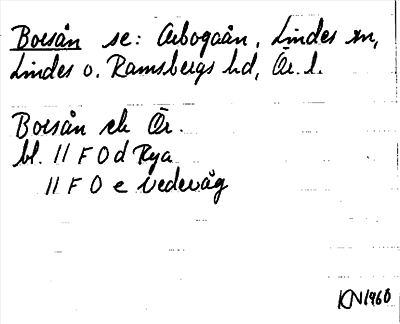 Borsån se: Arbogaån, Lindes sn,
Lindes o. Ramsbergs hd, Ör. l.
Borsån ek Ör.
bl. 11 F 0 d Rya
11 F 0 e Vedevåg
KN 1960